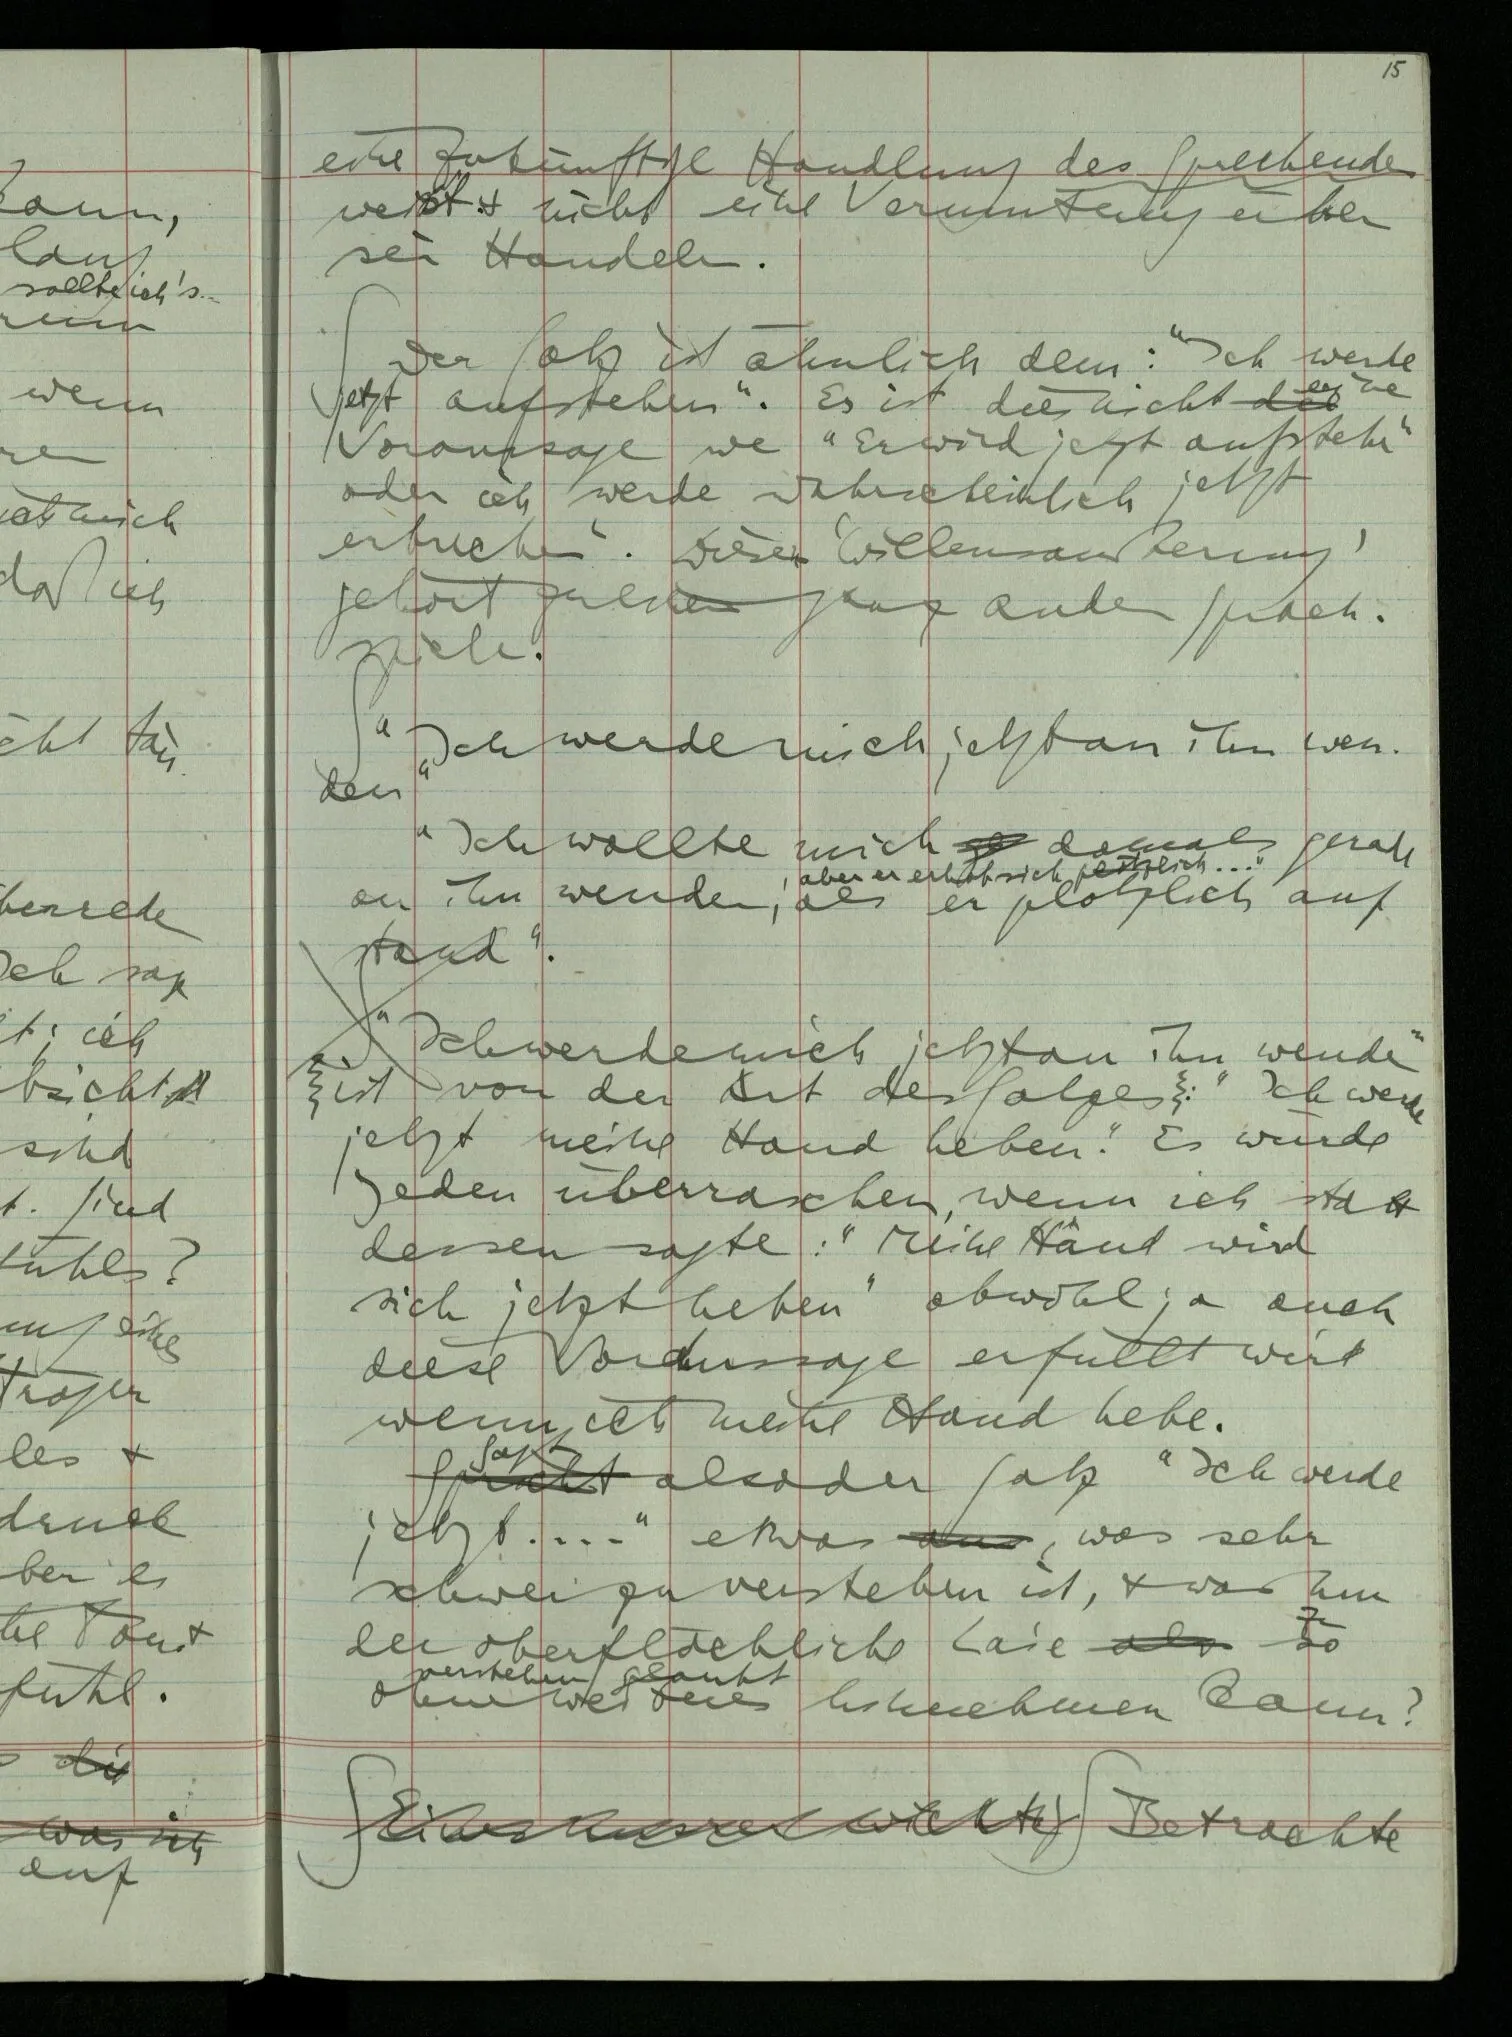 15
eine zukünftige Handlung des Sprechenden
weist & nicht eine Vermutung über
sein Handeln.
∫ Der Satz ist ähnlich dem: "Ich werde
jetzt aufstehen". Es ist dies nicht die eine
Voraussage wie "Er wird jetzt aufstehn"
oder ich werde wahrscheinlich jetzt
erbrechen". Diese 'Willensäußerung'
gehört zu einem ganz andern Sprach-
spiele.
∫ "Ich werde mich jetzt an ihn wen-
den"
"Ich wollte mich damals gerade
, aber er erhob sich plötzlich..."
an ihn wenden, als er plötzlich auf
stand".
∫ "Ich werde mich jetzt an ihn wenden"
ist von der Art des Satzes: "Ich werde
jetzt meine Hand heben." Es würde
Jeden überraschen, wenn ich statt
dessen sagte: "Meine Hand wird
sich jetzt heben" obwohl ja auch
diese Voraussage erfüllt wird
wenn ich meine Hand hebe.
Sagt
Spricht also der Satz "Ich werde
jetzt...." etwas aus, was sehr
schwer zu verstehen ist, & was nun
der oberflächliche Laie also so zu
verstehen glaubt
ohne weiteres hinnehmen kann?
∫ Betrachte
kann,
sollte ich's...
wenn
daß ich
Ich sag
t; ich
sind
t. Sind
tuhls?
les &
ber es
fühl.
die
was ich
auf